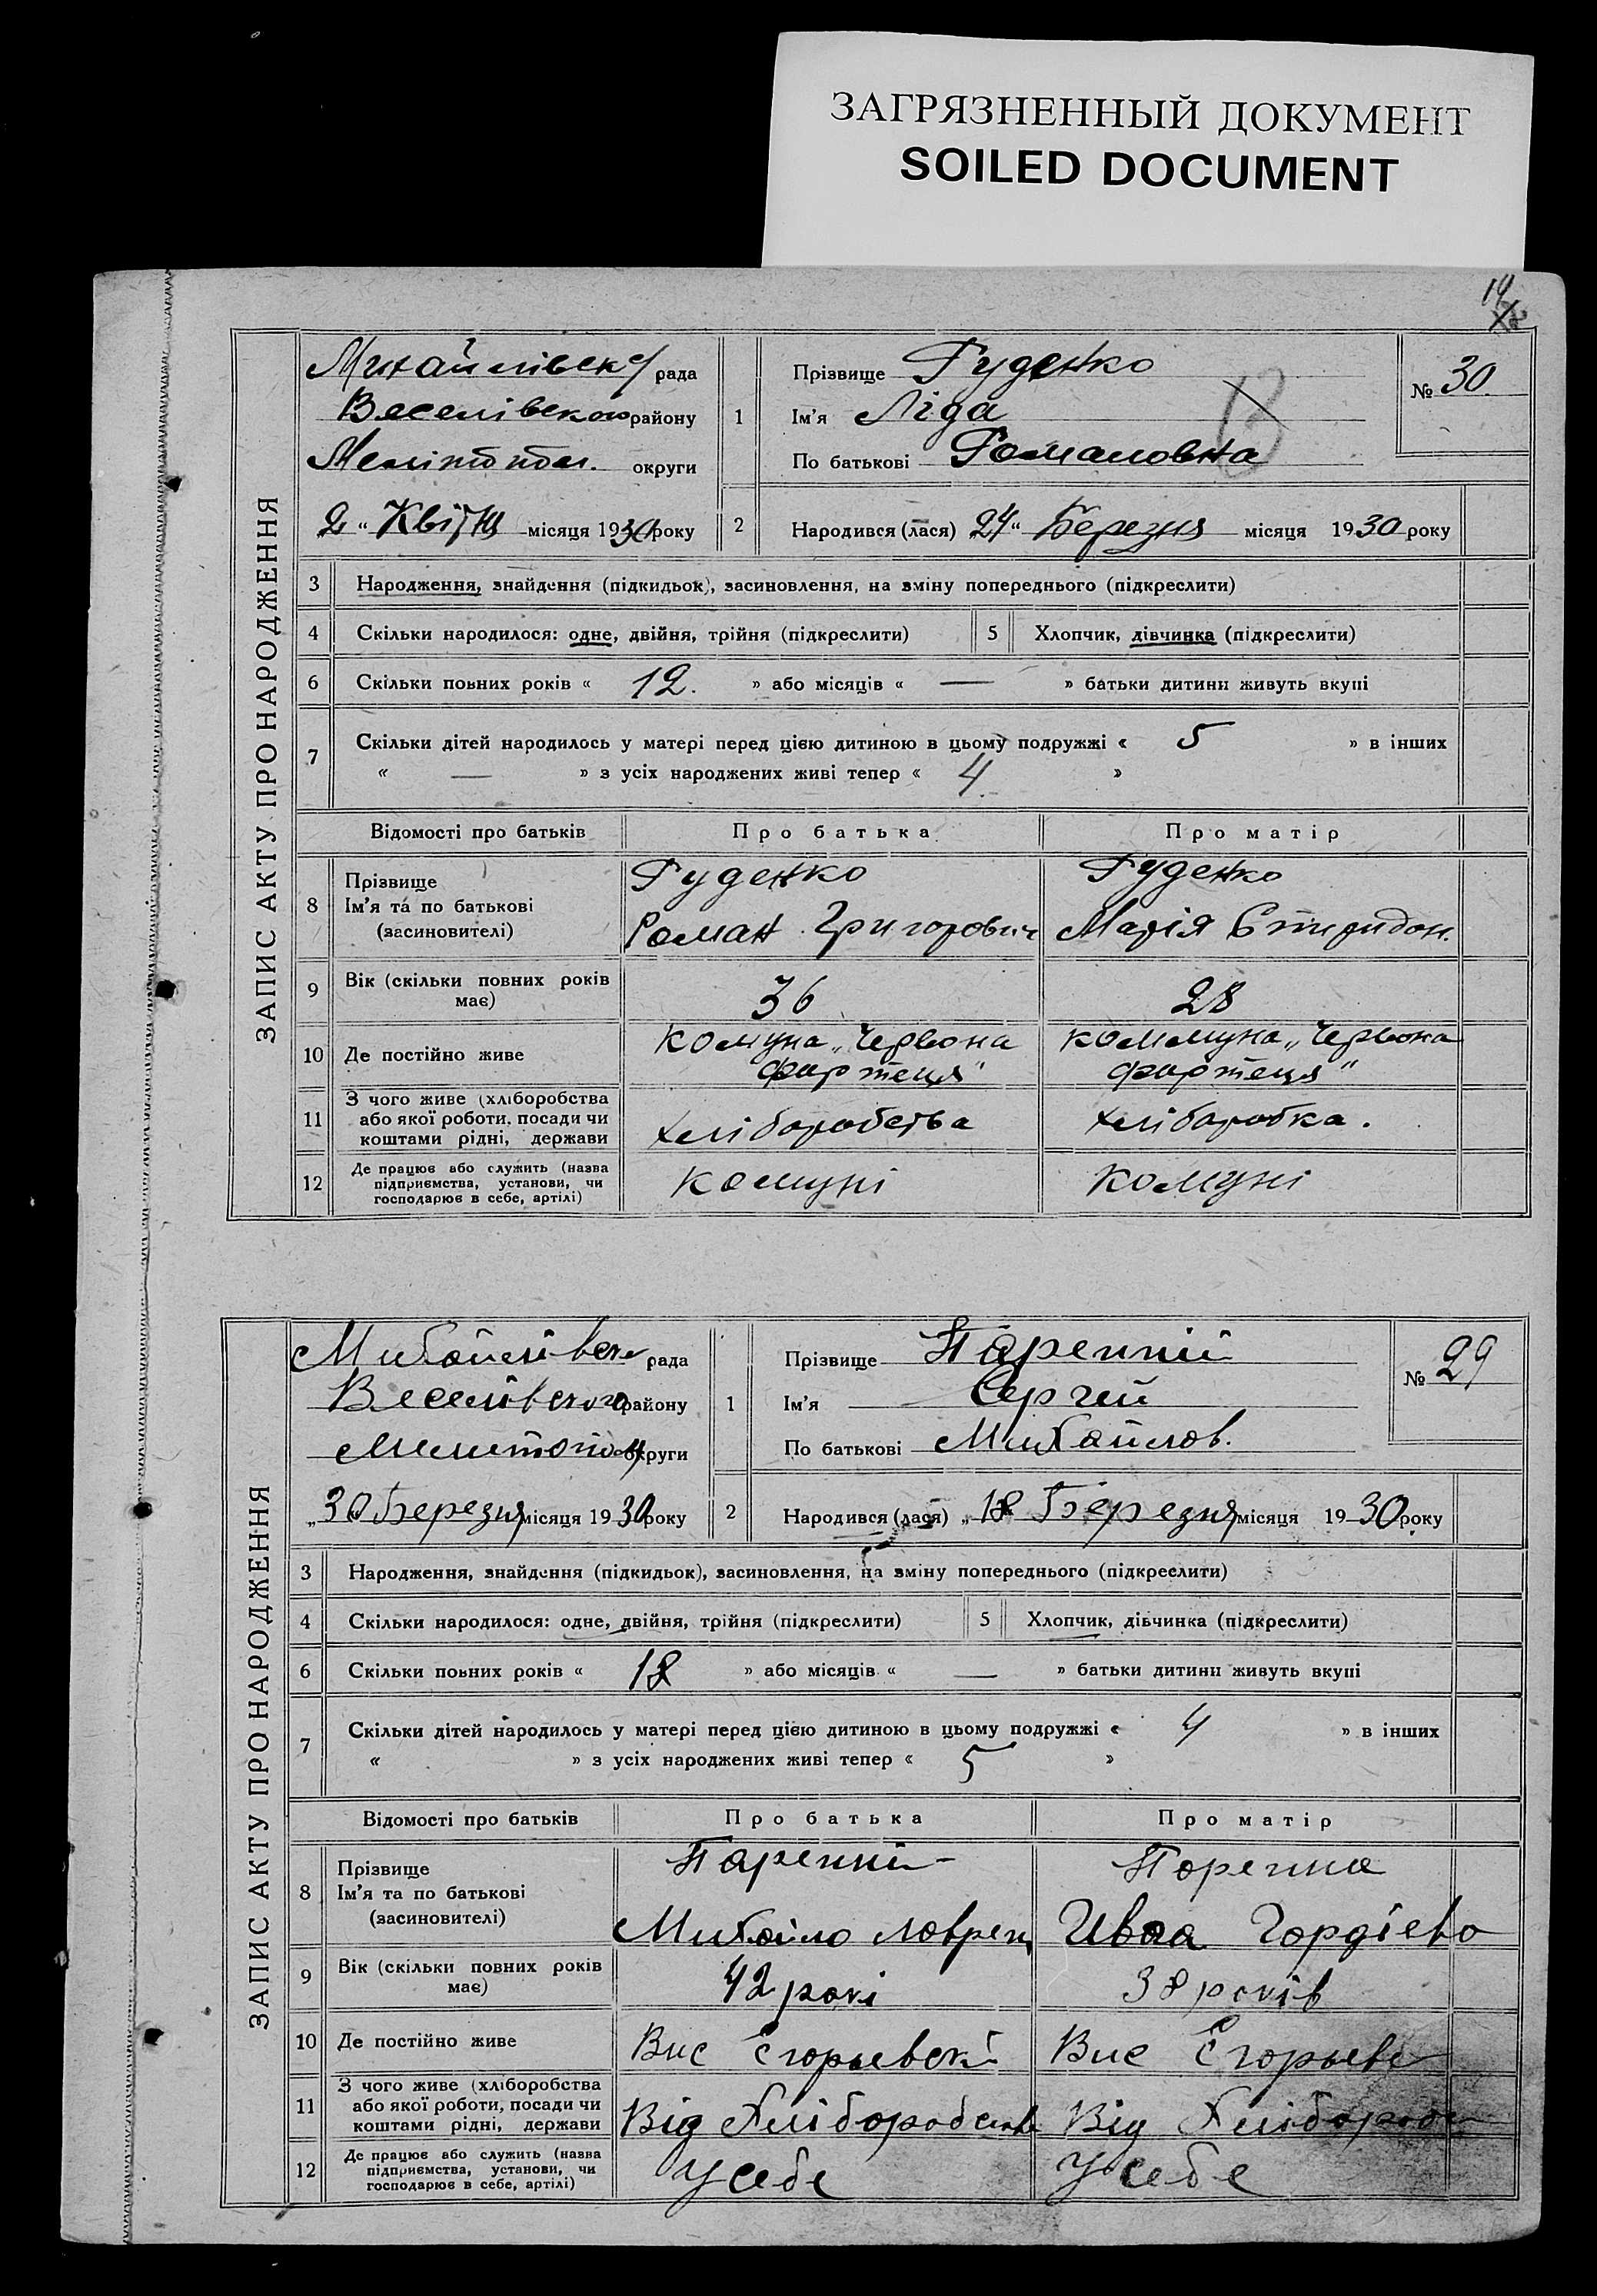 ЗАГРЯЗНЕННЫЙ ДОКУМЕНТ
SOILED DOCUMENT
14
ЗАПИС АКТУ ПРО НАРОДЖЕННЯ
Михайлівськ рада
Веселівського району
Мелітопол. округи
2 “ Квітня місяця 1930 року
1
Прізвище Руденко
Ім'я Ліда
По батькові Романовна
№ 30
2 Народився (лася) 24 “ Березня місяця 1930 року
3 Народження, знайдення (підкидьок), засиновлення, на зміну попереднього (підкреслити)
4 Скільки народилося: одне, двійня, трійня (підкреслити) 5 Хлопчик, дівчинка (підкреслити)
6 Скільки повних років « 12. » або місяців « — » батьки дитини живуть вкупі
7 Скільки дітей народилось у матері перед цією дитиною в цьому подружжі « 5 » в інших
« — » з усіх народжених живі тепер « 4 »
Відомості про батьків Про батька Про матір
8 Прізвище Ім'я та по батькові (засиновителі)
Руденко Роман Григорович
Руденко Марія Спиридон.
9 Вік (скільки повних років має) 36 28
10 Де постійно живе комуна „Червона фортеця“ коммуна „Червона фортеця“
11 З чого живе (хліборобства або якої роботи, посади чи коштами рідні, держави хліборобства хліборобка.
12 Де працює або служить (назва підприємства, установи, чи господарює в себе, артілі) комуні комуні
ЗАПИС АКТУ ПРО НАРОДЖЕННЯ
Михайлівськ рада
Веселівського району
Мелитопол округи
„30 Березня місяця 1930 року
1
Прізвище Паренній
Ім'я Сергей
По батькові Михайлов.
№ 29
2 Народився (лася) „18 Березня місяця 1930 року
3 Народження, знайдення (підкидьок), засиновлення, на зміну попереднього (підкреслити)
4 Скільки народилося: одне, двійня, трійня (підкреслити) 5 Хлопчик, дівчинка (підкреслити)
6 Скільки повних років « 12 » або місяців « — » батьки дитини живуть вкупі
7 Скільки дітей народилось у матері перед цією дитиною в цьому подружжі « 4 » в інших
« » з усіх народжених живі тепер « 5 »
Відомості про батьків Про батька Про матір
8 Прізвище Ім'я та по батькові (засиновителі)
Паренній Михайло Лаврен
Гордієво
9 Вік (скільки повних років має) 42 рокі 38 років
10 Де постійно живе Вис Єгорьевскі Вис Єгорьевс
11 З чого живе (хліборобства або якої роботи, посади чи коштами рідні, держави Від хліборобства Від хлібороб
12 Де працює або служить (назва підприємства, установи, чи господарює в себе, артілі) У себе У себе